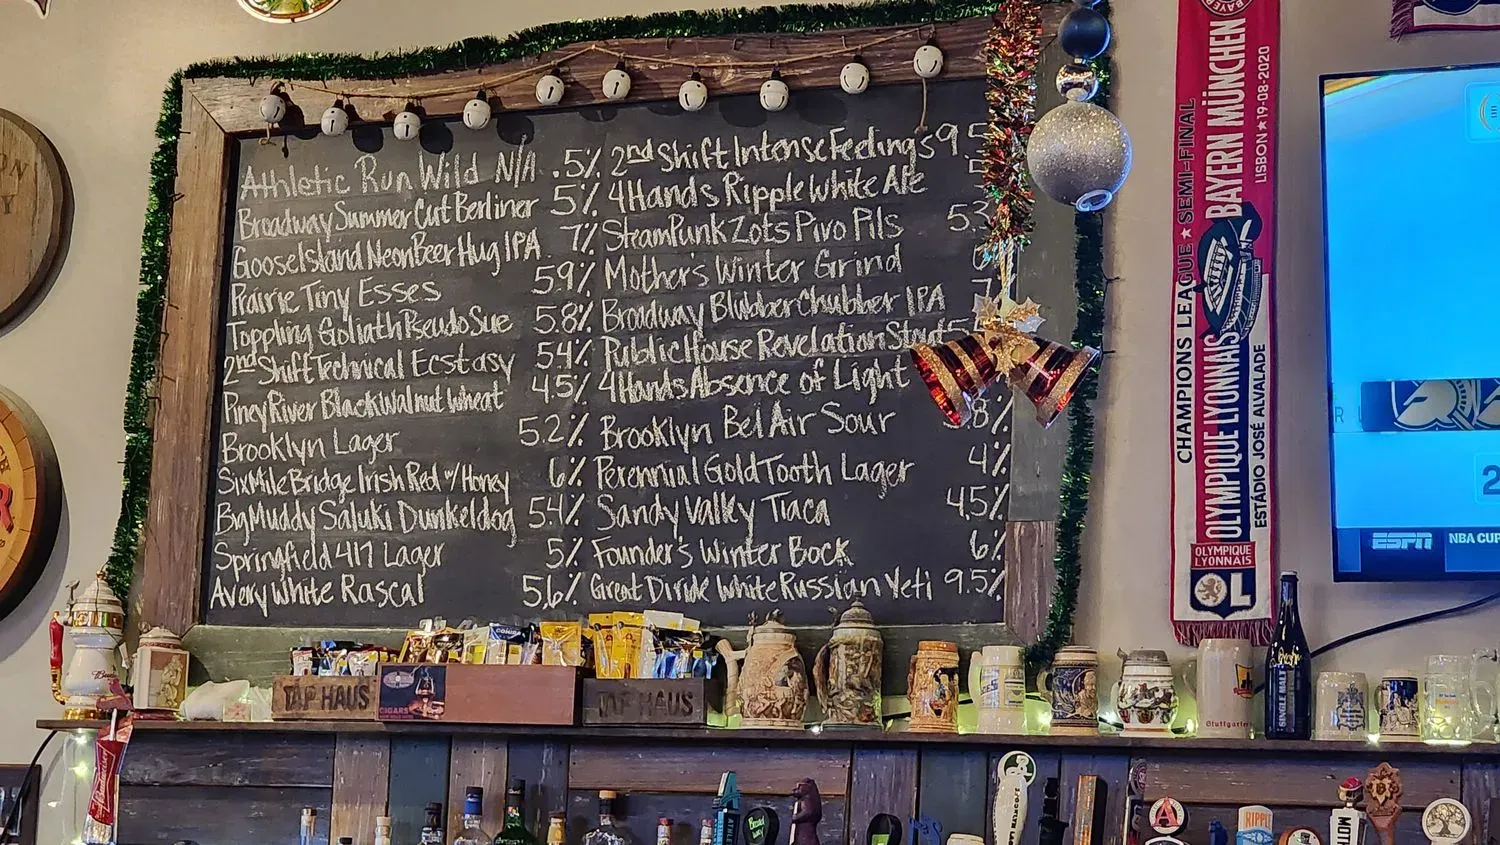 Athletic Run Wild N/A .5%
Broadway Summer Cut Berliner 5%
Goose Island Neon Beer Hug IPA 7%
Prairie Tiny Esses 5.9%
Toppling Goliath Pseudo Sue 5.8%
2nd Shift Technical Ecstasy 5.4%
Piney River Black Walnut Wheat 4.5%
Brooklyn Lager 5.2%
Six Mile Bridge Irish Red w/ Honey 6%
Big Muddy Saluki Dunkeldog 5.4%
Springfield 417 Lager 5%
Avery White Rascal 5.6%
2nd Shift Intense Feelings 9.5
4 Hands Ripple White Ale 5
SteamPunk Zots Pivo Pils 5.3
Mother's Winter Grind
Broadway Blubber Chubber IPA 7
Public House Revelation Stout
4 Hands Absence of Light
Brooklyn Bel Air Sour .8%
Perennial Gold Tooth Lager 4%
Sandy Valley Tiaca 4.5%
Founder's Winter Bock 6%
Great Divide White Russian Yeti 9.5%
TAP HAUS
CIGARS
TAP HAUS
CHAMPIONS LEAGUE ★ SEMI-FINAL
OLYMPIQUE LYONNAIS
BAYERN MÜNCHEN
ESTÁDIO JOSÉ ALVALADE
LISBON ★ 19-08-2020
OLYMPIQUE
LYONNAIS
OL
ESPN
NBA CUP
2
Stuttgarter
SINGLE MALT
Budweiser
RIPPLE